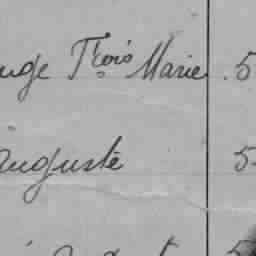 uge Frois Marie 5
auguste 5